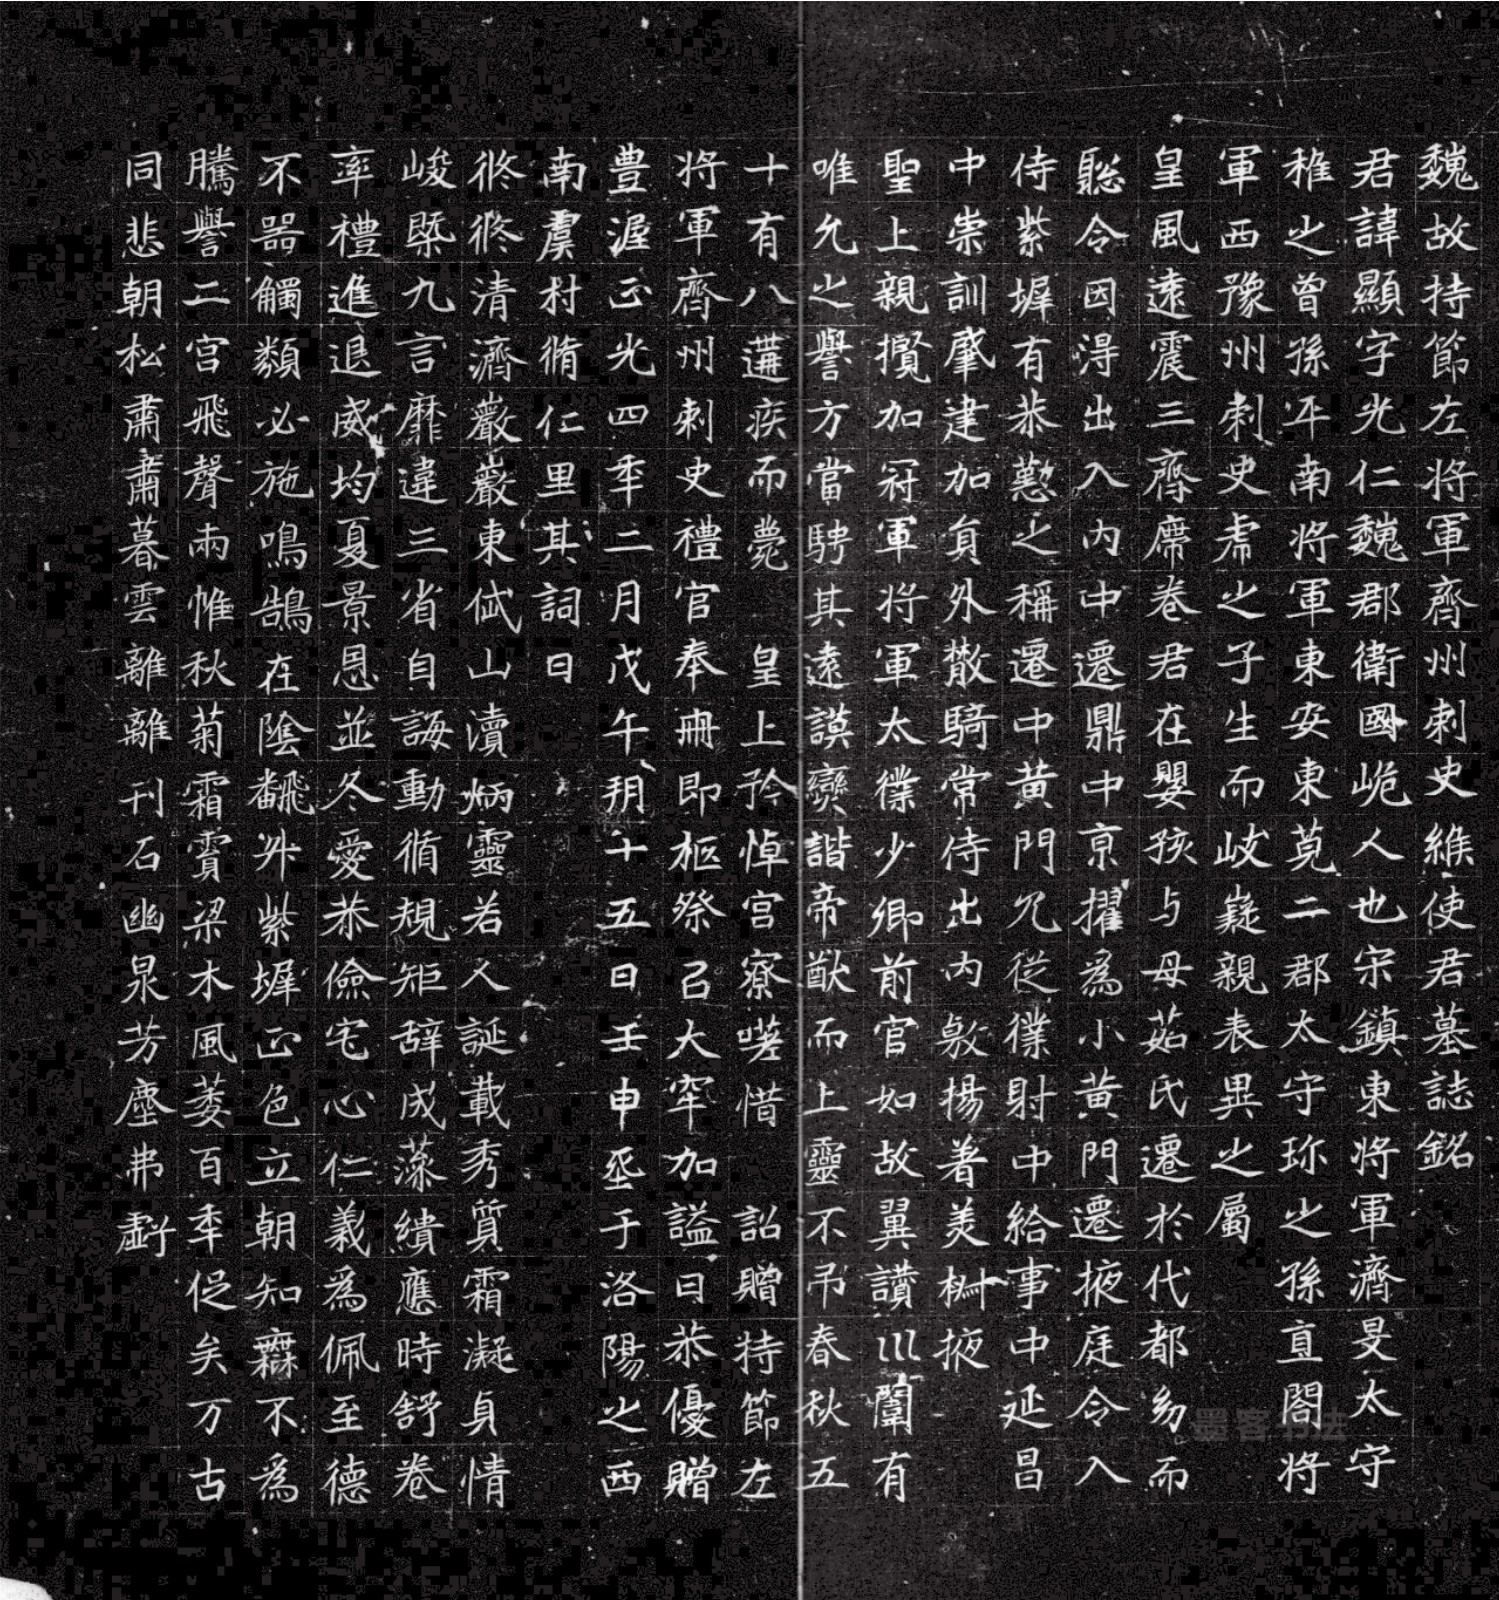 魏故持節左將軍齊州刺史維使君墓誌銘
君諱顯字光仁魏郡衛國峗人也宋鎮東將軍濟旻太守
稚之曾孫平南將軍東安東莞二郡太守珎之孫直閤將
軍西豫州刺史虎之子生而岐嶷親表異之屬
皇風遠震三齊席卷君在嬰孩与母茹氏遷於代都幼而
聡令因淂出入內中遷鼎中京擢為小黃門遷掖庭令入
侍紫墀有恭懃之稱遷中黃門冗從僕射中給事中延昌
中崇訓肇建加員外散騎常侍出內敭揚著美椒掖
聖上親攬加冠軍將軍太僕少卿前官如故翼讚川闈有
唯允之譽方當騁其遠謨燮諧帝猷而上靈不吊春秋五
十有八遘疾而薨 皇上矜悼宮寮嗟惜 詔贈持節左
將軍齊州刺史禮官奉冊即柩祭召大牢加謚曰恭優贈
豊渥正光四年二月戊午玥十五日壬申窆于洛陽之西
南虞村脩仁里其詞曰
悠悠清濟巖巖東岱山瀆炳靈若人誕載秀質霜凝貞情
峻槩九言靡違三省自誨動循規矩辞成藻繢應時舒卷
率禮進退威均夏景恩並冬愛恭儉宅心仁義為佩至德
不器觸類必施鳴鵠在陰飜升紫墀正色立朝知無不為
騰譽二宮飛聲兩惟秋菊霜霣梁木風萎百年促矣万古
同悲朝松肅肅暮雲離離刊石幽泉芳塵弗虧
墨客书法